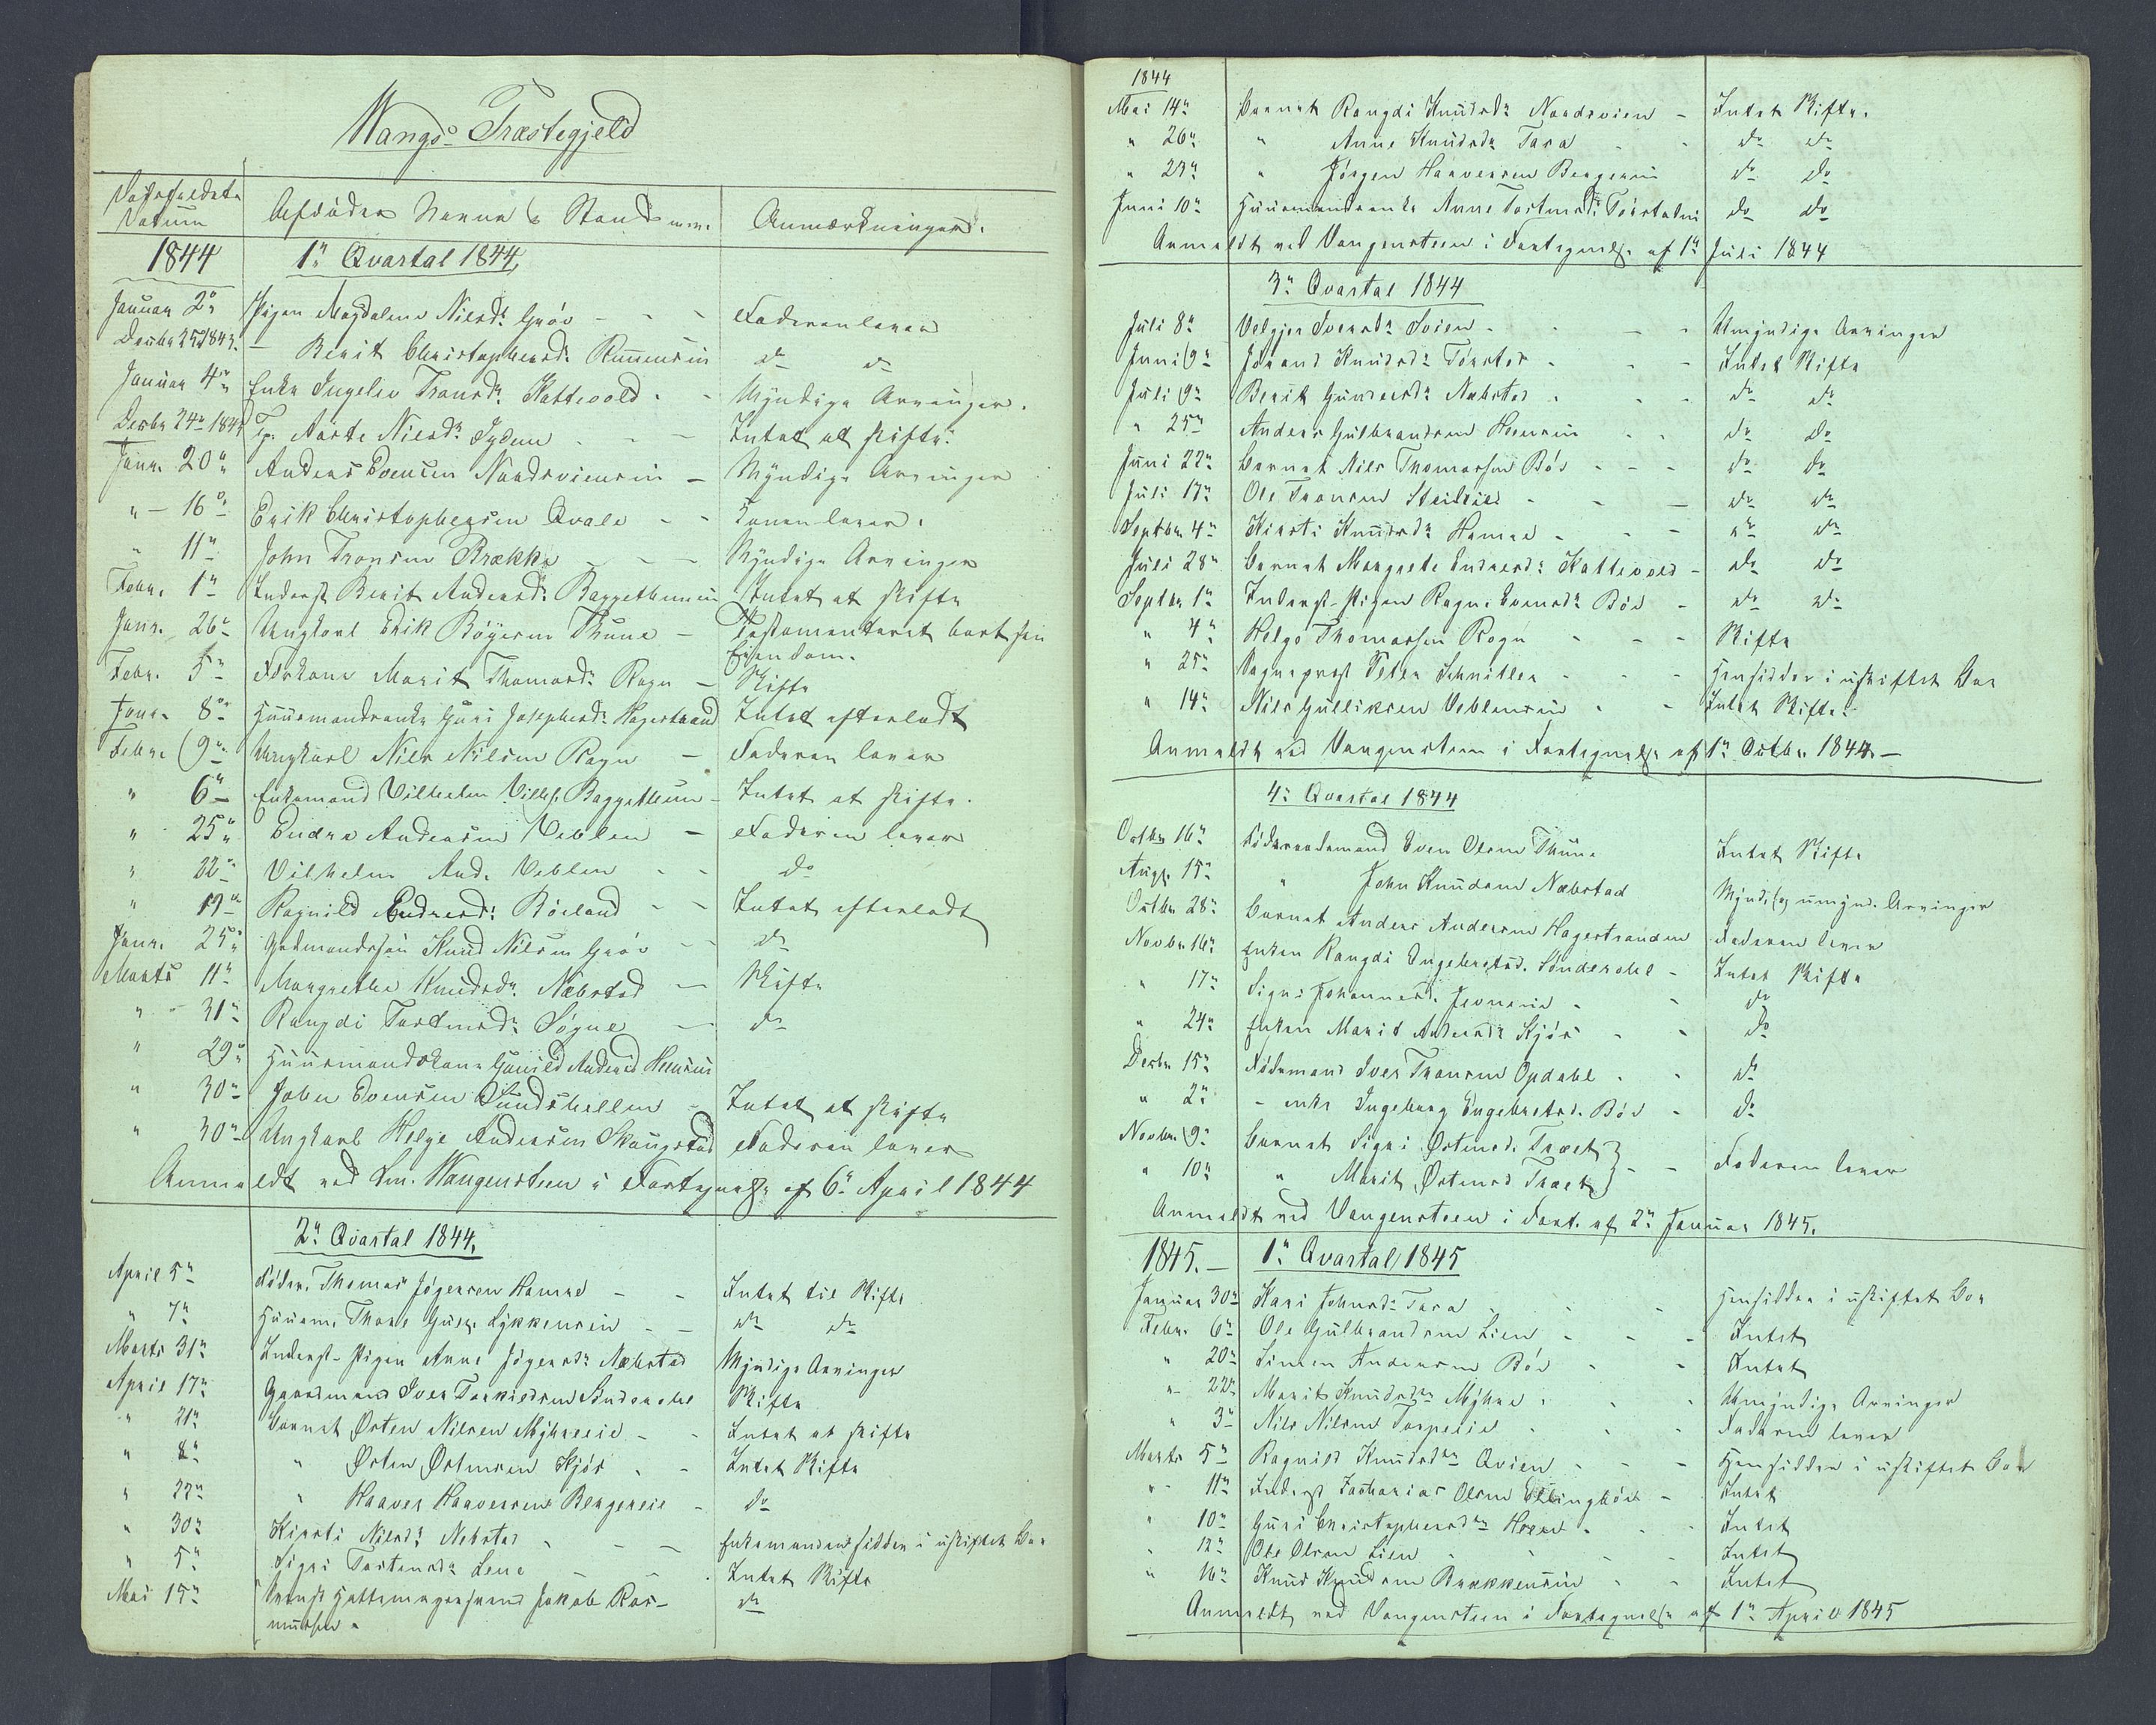 Wangs Præstegjeld
Dødsfaldets Datum
Afdødes Navne & Stand m.m.
Anmærkninger.
1844 1ste Qvartal 1844,
Januar 2den Pigen Magdalene Nilsdr Grøv - - - Faderen lever
Decbr 25de 1843. - Berit Christophersdr - do do
Januar 4de Enke Ingelev Tronsdr Kattevold - - Myndige Arvinger.
Decbr 24de 1843 Marte Nilsdr - - Intet at skifte.
Janr. 20de Anders Evensen Nordsveensin - Myndige Arvinger
" - 16de Erik Christophersen Qvale - - Konen lever.
" 11te John Tronsen Brække - - Myndige Arvinger
Febr. 1ste Inderst Berit Andersdr Baggethunnin Intet at skifte
Janr. 26de Ungkarl Erik Bøyesen Thune - Testamenteret bort sin Eiendom.
Febr. 5te Marit Thomasdr Rogn - Skifte
Janr. 8de Huusmandsenke Guri Josephsdr Hagestrand Intet efterladt
Febr. 9de Ungkarl Nils Nilsen Rogn - Faderen lever
" 6te Enkemand Vilhelm Vilhs. Baggethun - Intet at skifte.
" 25de Endre Andersen Veblen - Faderen lever
" 22de Vilhelm And. Veblen - - do
" 19de Ragnild Endresdr Böeland - - Intet efterladt
Janr. 25de Gaardmandssøn Knud Nilsen Grøv - - do
Marts 11te Margrethe Knudsdr Næbstad - Skifte
" - 31te Rangdi Torstensdr Søgne - do
" 29de Huusmandskone Gunild Andersd Hensin
" 30te John Evensen Sundshellen - Intet at skifte
" 30te Ungkarl Helge Andersen Skougstad Faderen lever
Anmeldt ved Lm. Wangensteen i Fortegnelse af 6te April 1844
2det Qvartal 1844.
April 5te Føder. Thomas Jögersen Hamre - - Intet til Skifte
" 7de Huusm. Thore Lykkensin - - do do
Marts 31te Inderst-Pigen Anne Jögersdr Næbstad Myndige Arvinger
April 17de Gaardmand Iver Torkildsen Skifte
" 21de Barnet Østen Nilsen Myhreeie - - Intet at skifte
" 8de " Østen Østensen Kjøs - - Intet Skifte
" 22de " Haaver Haaversen Bergeneie - do
" 30te Kirsti Nilsdr Nebstad - - - Enkemanden sidder i uskiftet Boe
" 5te Sigri Torstensdr Lene - - Intet Skifte
Mai 15de Hattemagersvend Jakob Ras-
mussen. do
1844
Mai 14de Barnet Rangdi Knudsdr Nordsveen - Intet Skifte.
" 26de " Anne Knudsdr Tara - - do do
" 23de " Jörgen Haaversen Bergenin do do
Juni 10de Huusmandsenke Anne Torstensdr do do
Anmeldt ved Vangensteen i Fortegnelse af 1ste Juli 1844
3die Qvartal 1844
Juli 8de Velgjer Iversdr Sveen - - - Umyndige Arvinger
Juni 9de Jörand Knudsdr Tørstad - - - Intet Skifte
Juli 9de Berit Gundersdr Næbstad - - - do do
" 25de Anders Gulbrandsen Hensin - - do do
Juni 22de Barnet Nils Thomassen Bøe - - - do do
Juli 17de Ole Tronsen - - - do do
Septbr. 4de Kirsti Knudsdr Hamre - - - do do
Juli 28de Barnet Margrete Endresdr Kattevold - do do
Septbr 1ste Inderst-Pigen Ragn. Evensdr Bøe - do do
" 4de Helge Thomassen Rogn - - - Skifte
" 25de Sognepræst Peter Schnitler - - - Hensidder i uskiftet Boe
" 14de Nils Gulliksen Veblensin - - Intet Skifte.
Anmeldt ved Vangensteen i Fortegnelse af 1ste Octbr. 1844. -
4de Qvartal 1844
Octbr 16de Föderaadsmand Even Olsen Thune Intet Skifte
Augs. 15de " John Knudsen Næbstad Mynd. og umynd. Arvinger
Octbr. 28de Barnet Anders Andersen Hagestranden Faderen lever
Novbr 16de Enken Rangdi Engebretsd. Sönderohl - Intet Skifte
" 17de Signe Johannesd. - - do
" 24de Enken Marit Andersdr Kjøs - - do
Decbr 15de Födsmand Iver Tronsen Opdahl - - do
" 2den - enke Ingeborg Engebretsd. Bøe - do
Novbr. 9de Barnet Sigri Østensd. Træet } - - Faderen lever
" 10de " Marit Østensd Træet }
Anmeldt ved Vangensteen i Fort. af 2den Januar 1845.
1845. - 1ste Qvartal 1845
Januar 30te Kari Johnsdr Tara - - - Hensidder i uskiftet Boe
Febr. 6te Ole Gulbrandsen Lien - - - Intet
" 20de Simen Andersen Bøe - - Intet
" - 22de Marit Knudsdtr Myhre - - - Umyndige Arvinger
" 3die Nils Nilsen - - - Faderen lever
Marts 5te Ragnild Knudsdtr Qvien - - - Hensidder i uskiftet Boe
" - 11te Inderst Zacharias Olsen Ellingbøe - Intet
" 10de Guri Christophersdtr - - - Intet
" 12te Ole Olsen Lien - - - Intet
" 16de Knud Knudsen Brækkensin - - Intet
Anmeldt ved Vangensteen i Fortegnelse af 1ste April 1845